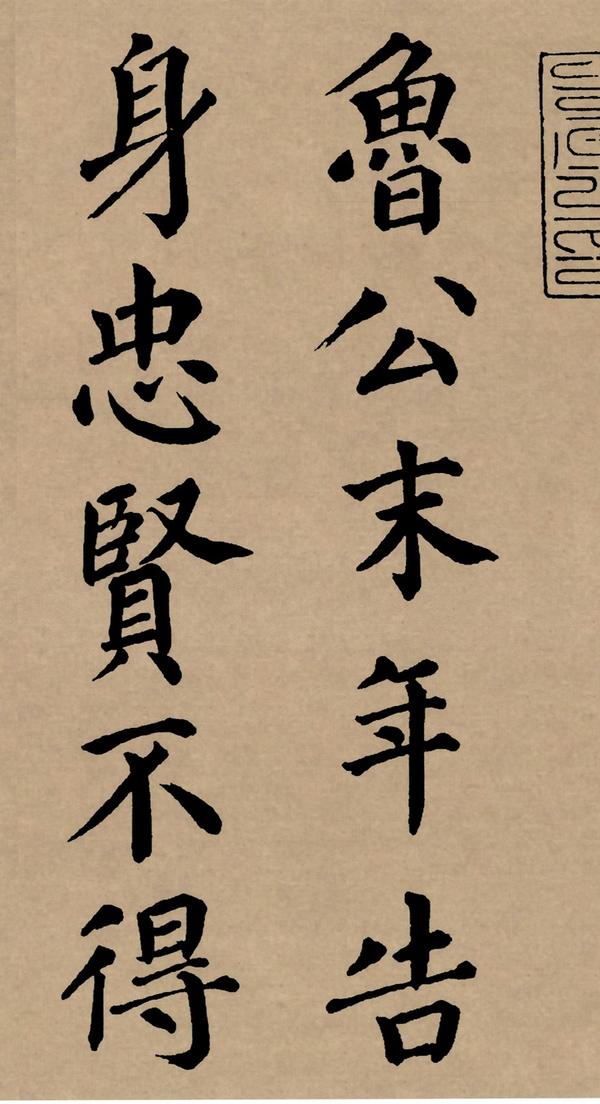 魯公末年告
身忠賢不得